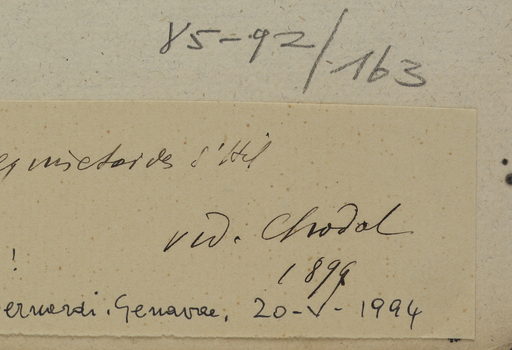 85-92/163
equisetoides S' Hil
vid. Chodat
1899
!
ernardi. Genavae. 20-V-1994